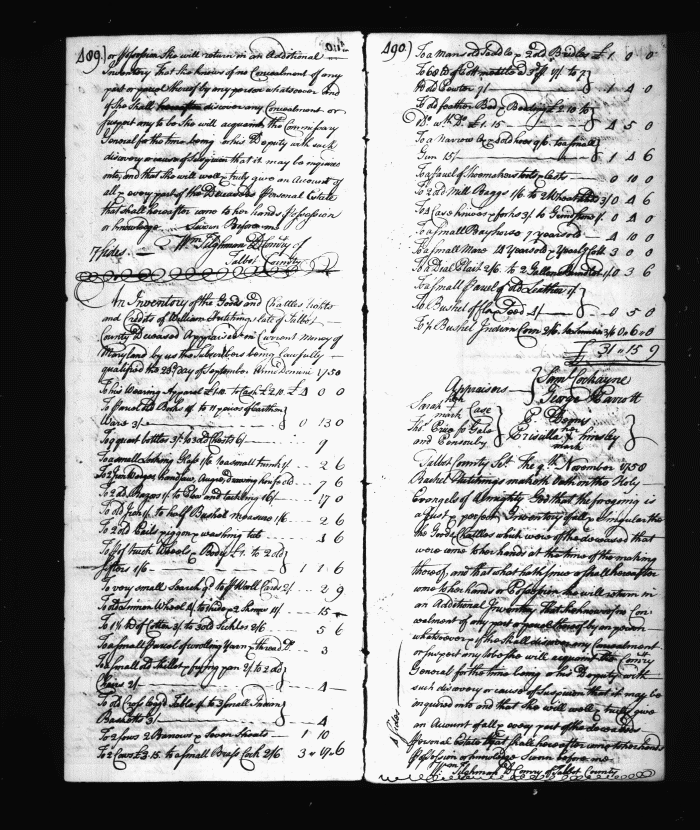 489.) or possession she will return in an Additional
Inventory that she knows of no Concealment of any
part or parcel thereof by any person whatsoever and
if she shall hereafter discover any Concealment or
suspect any to be she will acquaint the Commissary
General for the time being or his Deputy with such
discovery or cause of suspicion that it may be inquired
into, and that she will well & truly give an Account of
all & every part of the Deceaseds Personal Estate
that shall hereafter come to her hands possession
or knowledge Sworn Before me
7 sides. Wm Tilghman D Comry of
Talbot County
An Inventory of the Goods and Chattles Rights
and Credits of William Hutchings late of Talbot
County Deceased Appraised in Current Money of
Maryland by us the Subscribers being Lawfully
qualified the 28th day of September Anno Domini 1750
To his Wearing Apparel £1.10. to Cash £2.10. £4 0 0
To a parcel old Books 2/ to 11 pieces of Earthen
Ware 3/ 0 13 0
To quart bottles 3/ to 3 old Chests 6/ 9
To a small Looking Glass 1/6 to a small trunk 1/ 2 6
7 6
17 0
To old Iron 1/ to half Bushel measure 1/6 2 6
To 2 old Pails piggin & washing tub 4 6
To old
sifters 1/6 1 1 6
To very small Search 9d to Wooll Cards 2/ 2 9
15
To 1½ lb of Cotton 2/ to 3 old Sickles 3/6 5 6
To a small Parcel of woolling Yarn & thread D. 3
To a small old Skillet & frying pan 2/ to 2 old
Chairs 2/ 4
To old Cross legd Table 1/ to 3 small Indian
Basketts 3/ 4
To 2 Sows 2 Barrows & Seven Shoats 1 10
To 2 Cows £3.15. to a small Brass Cock 2/6 3 17 6
490.) To a Mans old Saddle & 2 old Bridles £1 0 0
old Pewter 1 4 0
To old feather Bed & Bedding £2.10 to
Do. wth Do. £1.15 4 5 0
To a Narrow Ax & old hoes 9/6 to a small
Gun 15/ 1 4 6
To a parcel of Shoemakers tools & Lasts 0 10 0
To 2 old Mill Baggs 1/6 to 2 Wheat 3/ 0 4 6
To 1 Case knives & forks 3/ to Grindstone 1/ 0 4 0
To a small Bay horse 7 years old 4 10 0
To a small Mare 14 years old & Yearly Colt 3 0 0
0 3 6
To a small Parcel of old Leather 1/
To Bushel of flax seed 4/ 0 5 0
To ½ Bushel Indian Corn 0 6 0
£31 15 9
Appraisers
Sam Cockayne
George Parrott
Sarah mark Case
and Ponsonby
Priscilla mark
Talbot County Sct. The 9th November 1750
Rachel Hutchings maketh Oath on the Holy
Evangels of Almighty God that the foregoing is
a Just & perfect Inventory of all & Singular the
the Goods & Chattles which were of the deceased that
were come to her hands at the time of the making
thereof, and that what hath since or shall hereafter
come to her hands or Possession she will return in
an Additional Inventory. That she knows of no Con-
cealment of any part or parcel thereof by any person
whatsoever & if she shall discover any Concealment
or suspect any to be she will acquaint the Comry
General for the time being or his Deputy with
such discovery or cause of suspicion that it may be
inquired into and that she will well & truly give
an Account of all & every part of the deceaseds
personal Estate that shall hereafter come to her hands
possession or knowledge Sworn before me
4 sides
Wm Tilghman D Comry of Talbot County